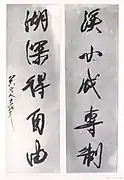 溪小成專制
湖深得自由